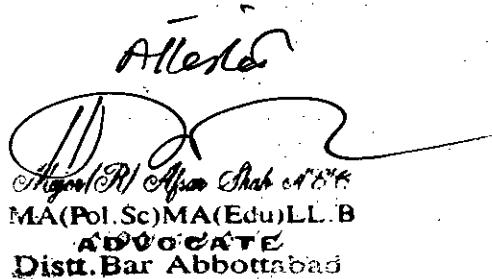 Attested
Major (R) Afsar Shah
MA(Pol.Sc)MA(Edu)LL.B
ADVOCATE
Distt.Bar Abbottabad